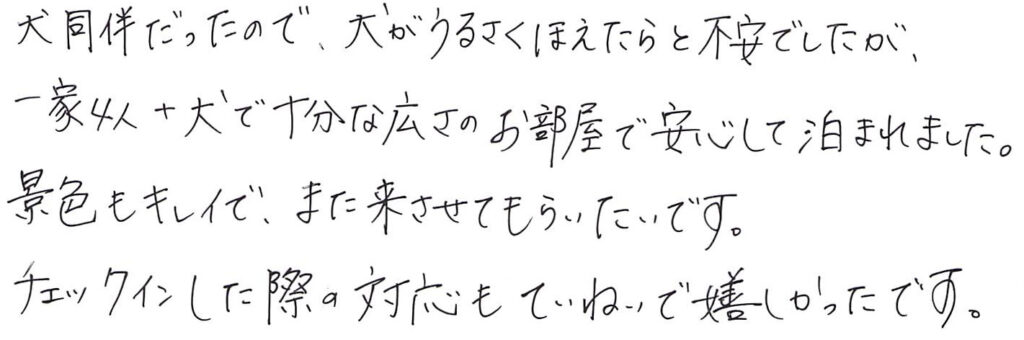 犬同伴だったので、犬がうるさくほえたらと不安でしたが、
一家4人+犬で十分な広さのお部屋で安心して泊まれました。
景色もキレイで、また来させてもらいたいです。
チェックインした際の対応もていねいで嬉しかったです。